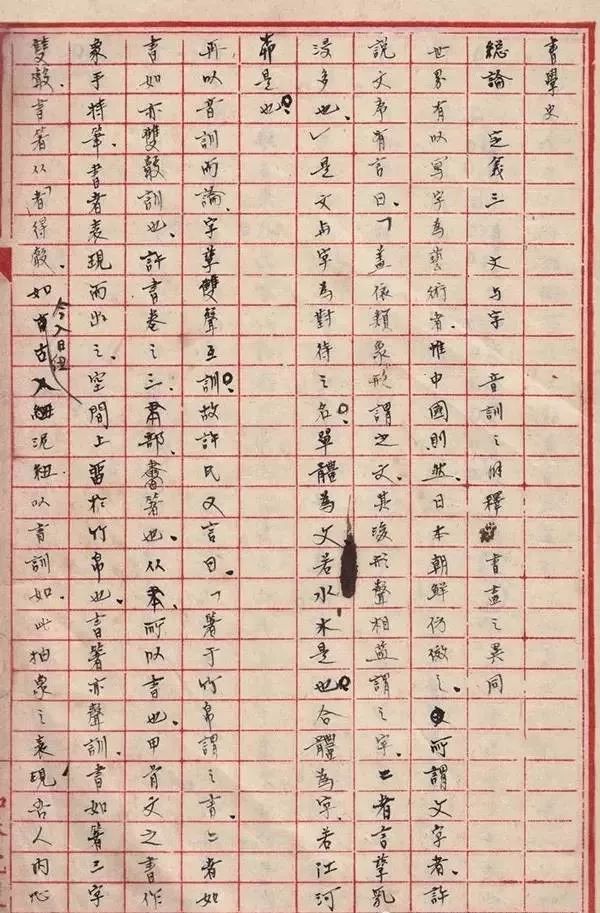 書學史
總論 定義三 文与字 音訓之解釋 書畫之異同
世界有以寫字為藝術者、惟中國則然、日本朝鮮仿傚之、所謂文字者、許
說文序有言曰、「蓋依類象形謂之文、其後形聲相益謂之字、二者言孳乳
浸多也、是文与字為對待之名。單體為文若水木是也。合體為字、若江河
是也。
再以音訓而論、字孳雙聲互訓。故許氏又言曰、「著于竹帛謂之書、二者如
書如亦雙聲訓也、許書卷之三聿部、書箸也、从聿所以書也、甲骨文之書作
象手持筆、書者表現而出之、空間上留於竹帛也、書箸亦聲訓、書如箸三字
雙聲、書箸从者得聲、如古泥紐以音訓如此抽象之表現、吾人內心
今入日紐